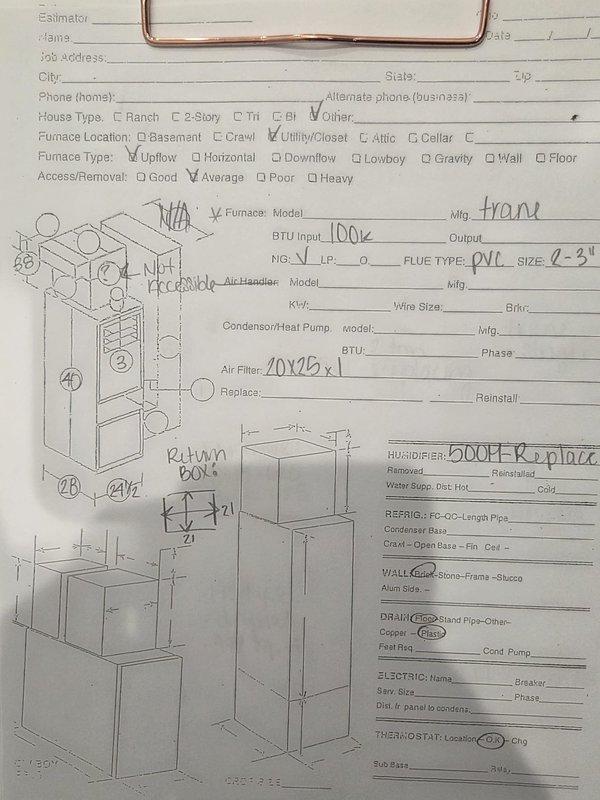 Estimator
Name: Date / /
Job Address:
City: State: Zip
Phone (home): Alternate phone (business):
House Type. Ranch 2-Story Tri Bi Other:
Furnace Location: Basement Crawl Utility/Closet Attic Cellar
Furnace Type: Upflow Horizontal Downflow Lowboy Gravity Wall Floor
Access/Removal: Good Average Poor Heavy
N/A Furnace: Model Mfg. trane
BTU Input 100K Output
NG: LP: O. FLUE TYPE: PVC SIZE: 2-3"
38 ? ← Not Accessible
Air Handler: Model Mfg.
KW: Wire Size: Brkr:
Condensor/Heat Pump. Model: Mfg.
BTU: Phase:
Air Filter: 20x25x1
Replace: Reinstall:
3
28 24 1/2
Return Box:
21
21
HUMIDIFIER: 500M-Replace
Removed Reinstalled
Water Supp. Dist: Hot Cold
REFRIG.: FC-QC-Length Pipe
Condenser Base
Crawl - Open Base - Fin Ceil -
WALL: Brick-Stone-Frame-Stucco
Alum Side. -
DRAIN: Floor Stand Pipe-Other-
Copper - Plastic
Feet Req Cond Pump
ELECTRIC: Name Breaker
Serv. Size Phase
Dist. fr panel to condens.
THERMOSTAT: Location-O.K-Chg
Sub Base Relay